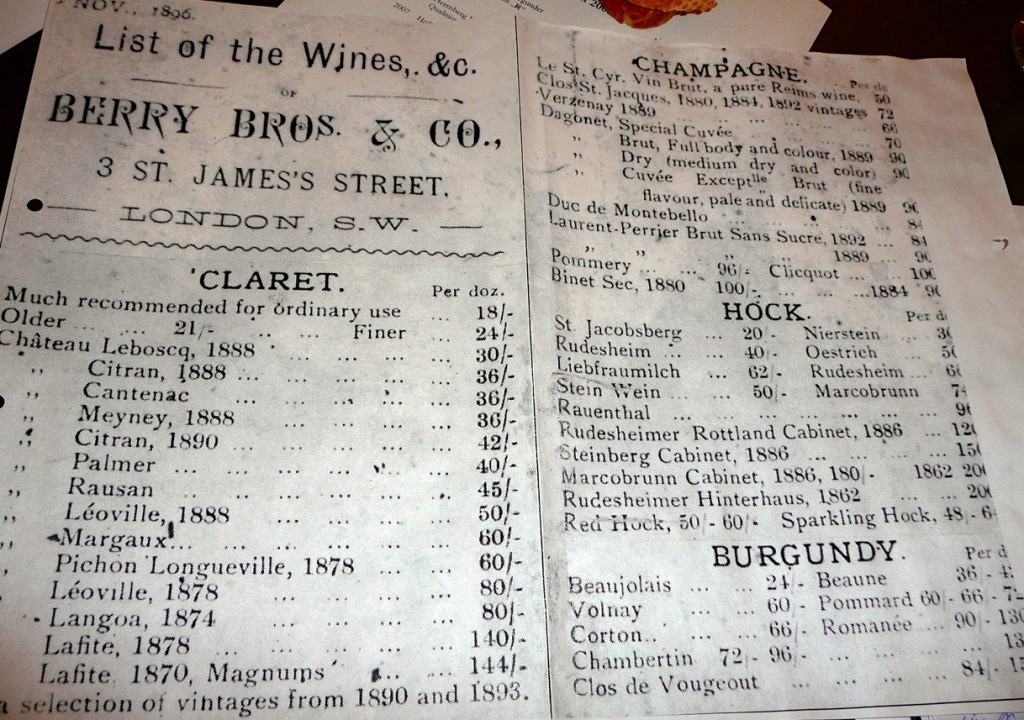 NOV., 1896.
List of the Wines, &c.
OF
BERRY BROS. & CO.,
3 ST. JAMES'S STREET,
LONDON, S.W.
CLARET.
Per doz.
Much recommended for ordinary use ... 18/-
Older ... ... 21/- ... Finer ... 24/-
Château Leboscq, 1888 ... ... ... 30/-
,, Citran, 1888 ... ... ... ... 36/-
,, Cantenac ... ... ... ... 36/-
,, Meyney, 1888 ... ... ... 36/-
,, Citran, 1890 ... ... ... ... 42/-
,, Palmer ... ... ... ... 40/-
,, Rausan ... ... ... ... 45/-
,, Léoville, 1888 ... ... ... 50/-
,, Margaux ... ... ... ... 60/-
,, Pichon Longueville, 1878 ... ... 60/-
,, Léoville, 1878 ... ... ... 80/-
Langoa, 1874 ... ... ... 80/-
Lafite, 1878 ... ... ... 140/-
Lafite 1870, Magnums ... ... 144/-
a selection of vintages from 1890 and 1893.
CHAMPAGNE.
Per d
Le St. Cyr. Vin Brut, a pure Reims wine, 50
Clos St. Jacques, 1880, 1884, 1892 vintages 72
Verzenay 1889 ... ... ... ... 66
Dagonet, Special Cuvée ... ... 70
,, Brut, Full body and colour, 1889 90
,, Dry (medium dry and color) 90
,, Cuvée Exceptlle Brut (fine
flavour, pale and delicate) 1889 90
Duc de Montebello ... ... ... 84
Laurent-Perrier Brut Sans Sucre, 1892 ... 84
,, ,, ,, 1889 ... 90
Pommery ... ... 96/- Clicquot ... 100
Binet Sec, 1880 100/- ... ... ...1884 90
HOCK.
Per d
St. Jacobsberg ... 20/- Nierstein ... 30
Rudesheim ... ... 40/- Oestrich ... 50
Liebfraumilch ... 62/- Rudesheim ... 60
Stein Wein ... 50/- Marcobrunn 7
Rauenthal ... ... ... ... ... 90
Rudesheimer Rottland Cabinet, 1886 ... 120
Steinberg Cabinet, 1886 ... ... ... 150
Marcobrunn Cabinet, 1886, 180/- 1862 200
Rudesheimer Hinterhaus, 1862 ... ... 200
Red Hock, 50/- 60/- Sparkling Hock, 48/- 6
BURGUNDY.
Per d
Beaujolais ... ... 24/- Beaune 36/- 4
Volnay ... ... 60/- Pommard 60/- 66/- 7
Corton.. ... ... 66/- Romanée ... 90/- 130
Chambertin 72/- 96/- ... ... ... 13
Clos de Vougeout ... ... ... 84/- 1